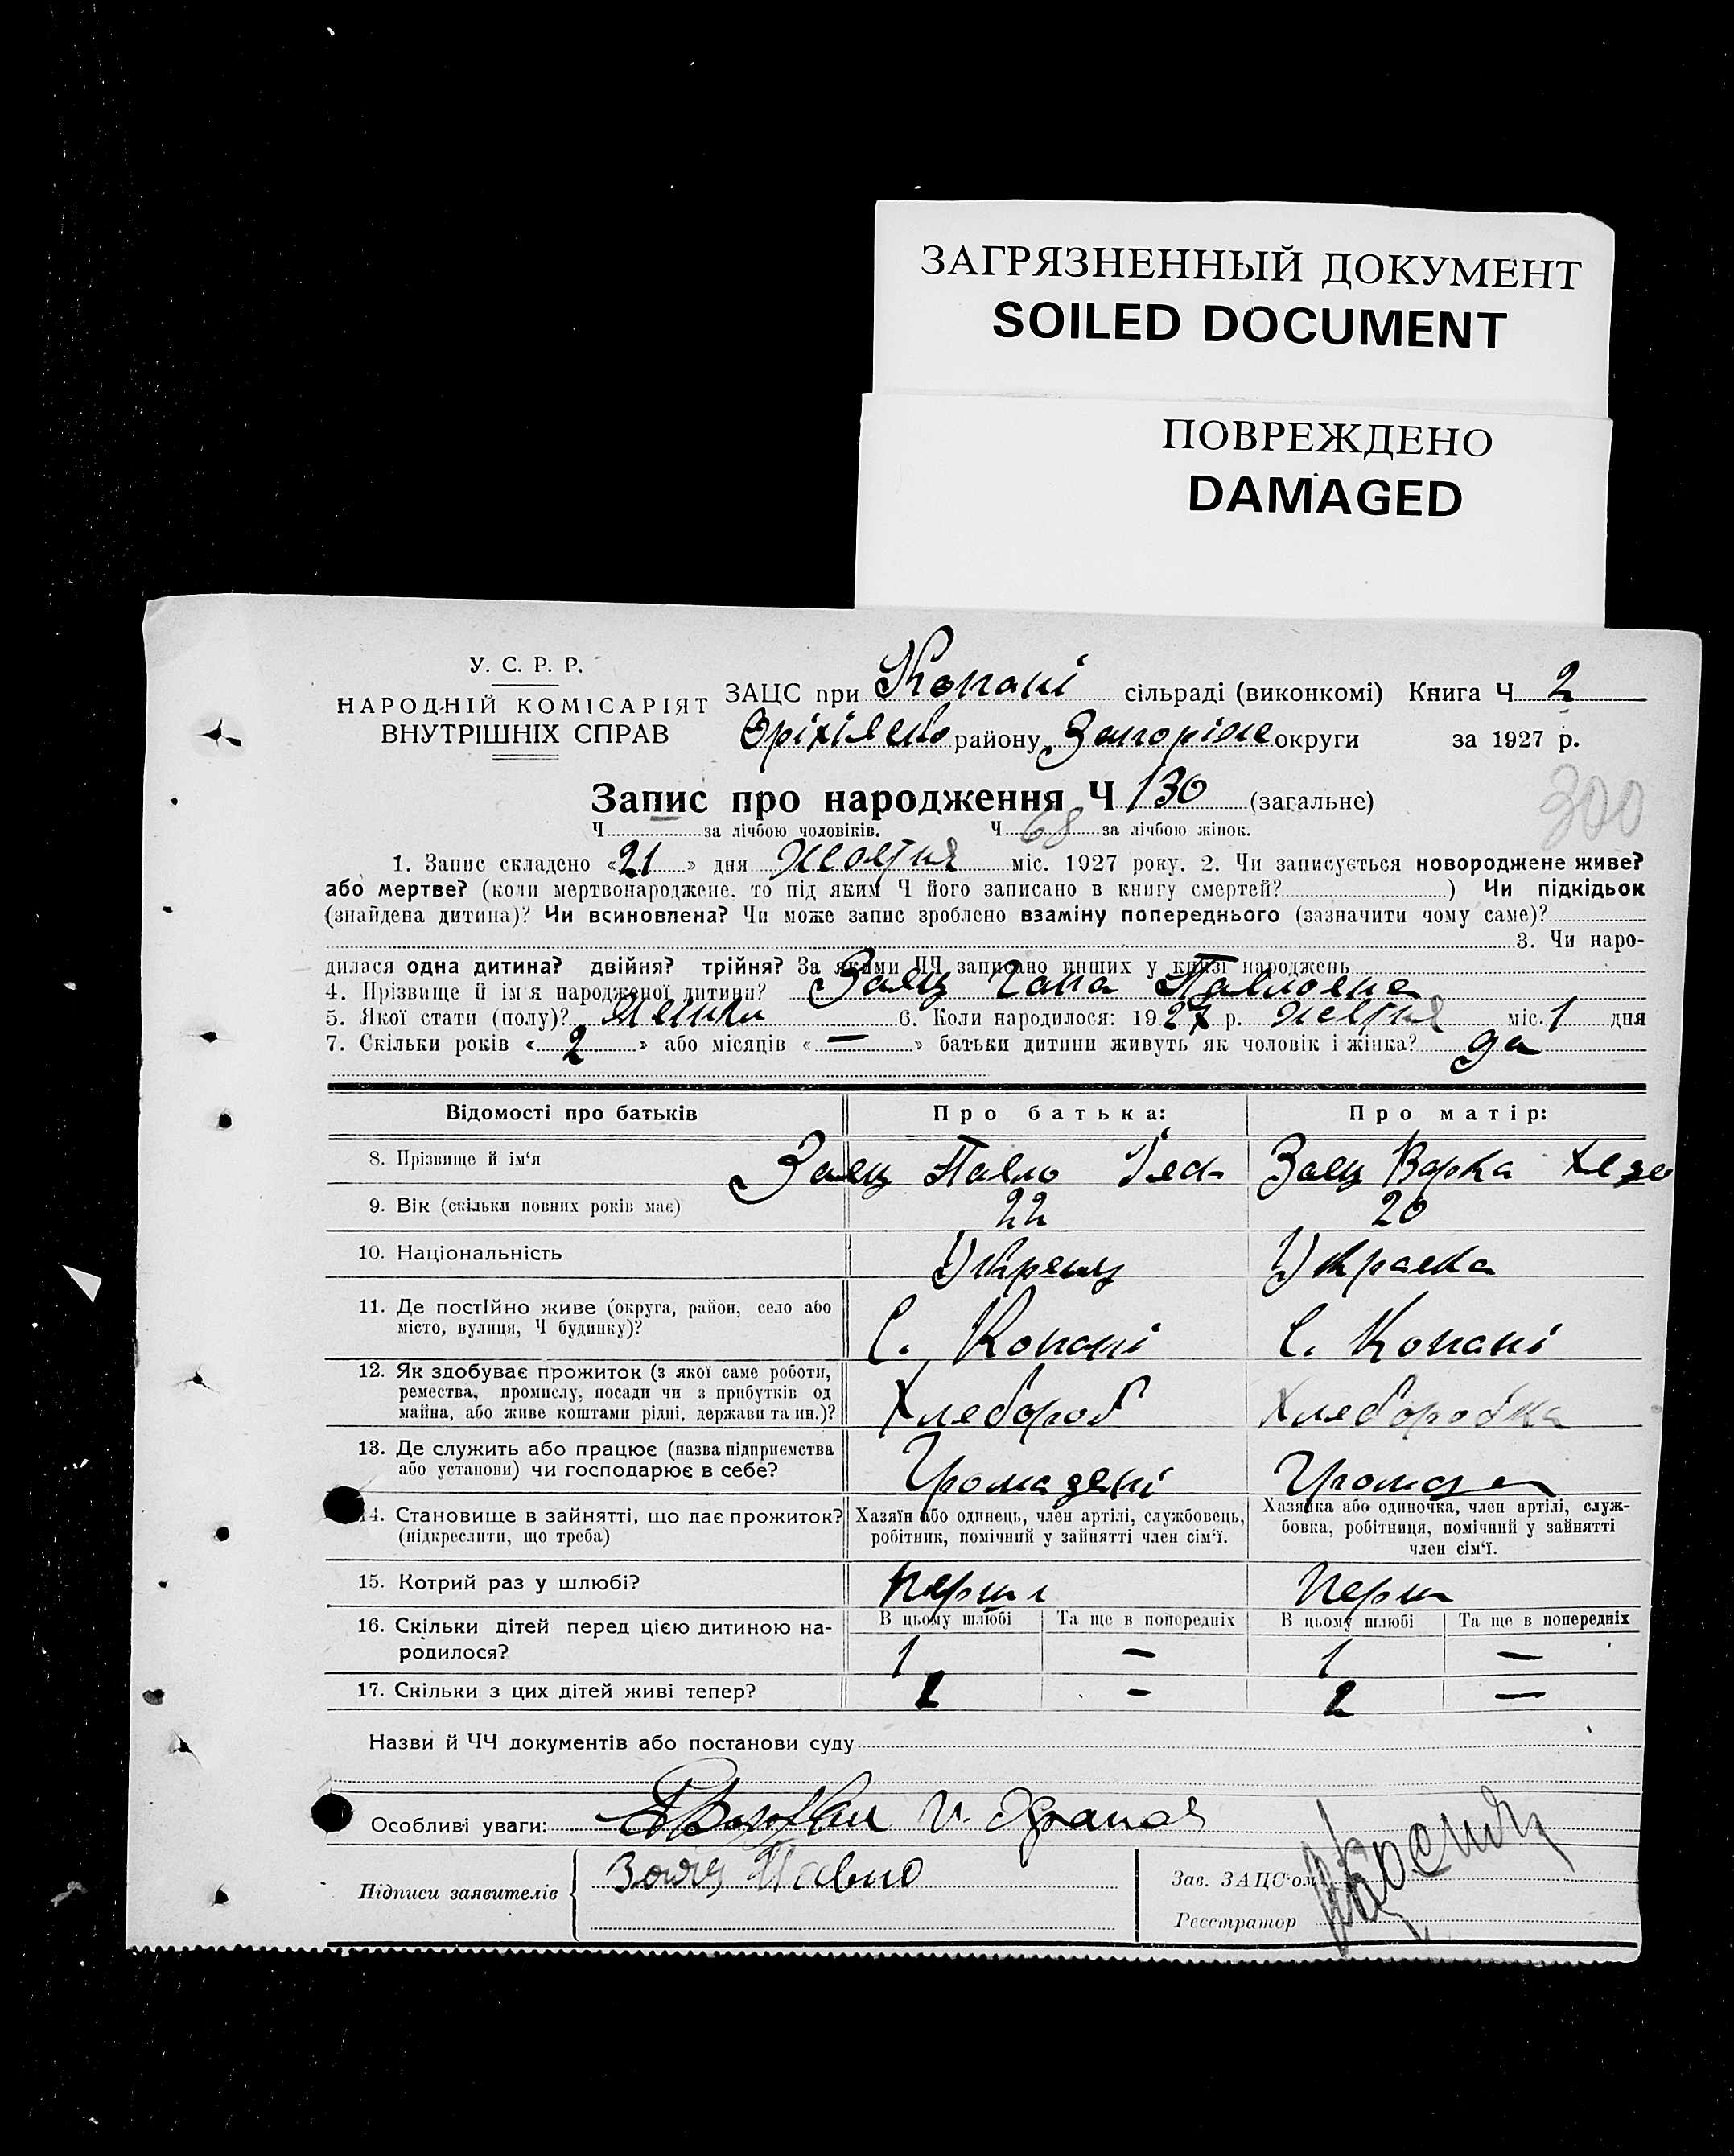 ЗАГРЯЗНЕННЫЙ ДОКУМЕНТ
SOILED DOCUMENT
ПОВРЕЖДЕНО
DAMAGED
У. С. Р. Р.
НАРОДНІЙ КОМІСАРІЯТ
ВНУТРІШНІХ СПРАВ
ЗАЦС при Копані сільраді (виконкомі) Книга Ч 2
району округи за 1927 р.
300
Запис про народження Ч 130 (загальне)
Ч за лічбою чоловіків. Ч 68 за лічбою жінок.
1. Запис складено «21» дня жовтня міс. 1927 року. 2. Чи записується новороджене живе?
або мертве? (коли мертвонароджене, то під яким Ч його записано в книгу смертей? ) Чи підкідьок
(знайдена дитина)? Чи всиновлена? Чи може запис зроблено взаміну попереднього (зазначити чому саме)?
3. Чи наро-
дилася одна дитина? двійня? трійня? За якими ЧЧ записано инших у книзі народжень
4. Прізвище й ім'я народженої дитини? Заяц Гана Павловна
5. Якої стати (полу)? 6. Коли народилося: 1927 р. жовтня міс. 1 дня
7. Скільки років «2» або місяців «—» батьки дитини живуть як чоловік і жінка? да
Відомості про батьків
Про батька:
Про матір:
8. Прізвище й ім‘я
Заяц Павло
Заяц Варка
9. Вік (скільки повних років має)
22
20
10. Національність
11. Де постІйно живе (округа, район, село або
місто, вулиця, Ч будинку)?
С. Копані
С. Копані
12. Як здобуває прожиток (з якої саме роботи,
ремества, промислу, посади чи з прибутків од
майна, або живе коштами рідні, держави та ин.)?
Хлебороб
Хлеборобка
13. Де служить або працює (назва підприємства
або установи) чи господарює в себе?
14. Становище в зайнятті, що дає прожиток?
(підкреслити, що треба)
Хазяїн або одинець, член артілі, службовець,
робітник, помічний у зайнятті член сім‘ї.
Хазяйка або одиночка, член артілі, служ-
бовка, робітниця, помічний у зайнятті
член сім‘ї.
15. Котрий раз у шлюбі?
16. Скільки дітей перед цією дитиною на-
родилося?
В цьому шлюбі Та ще в попередніх В цьому шлюбі Та ще в попередніх
1 — 1 —
17. Скільки з цих дітей живі тепер?
2 — 2 —
Назви й ЧЧ документів або постанови суду
Особливі уваги:
Підписи заявителів
Заяц Павло
Зав. ЗАЦС‘ом
Реєстратор